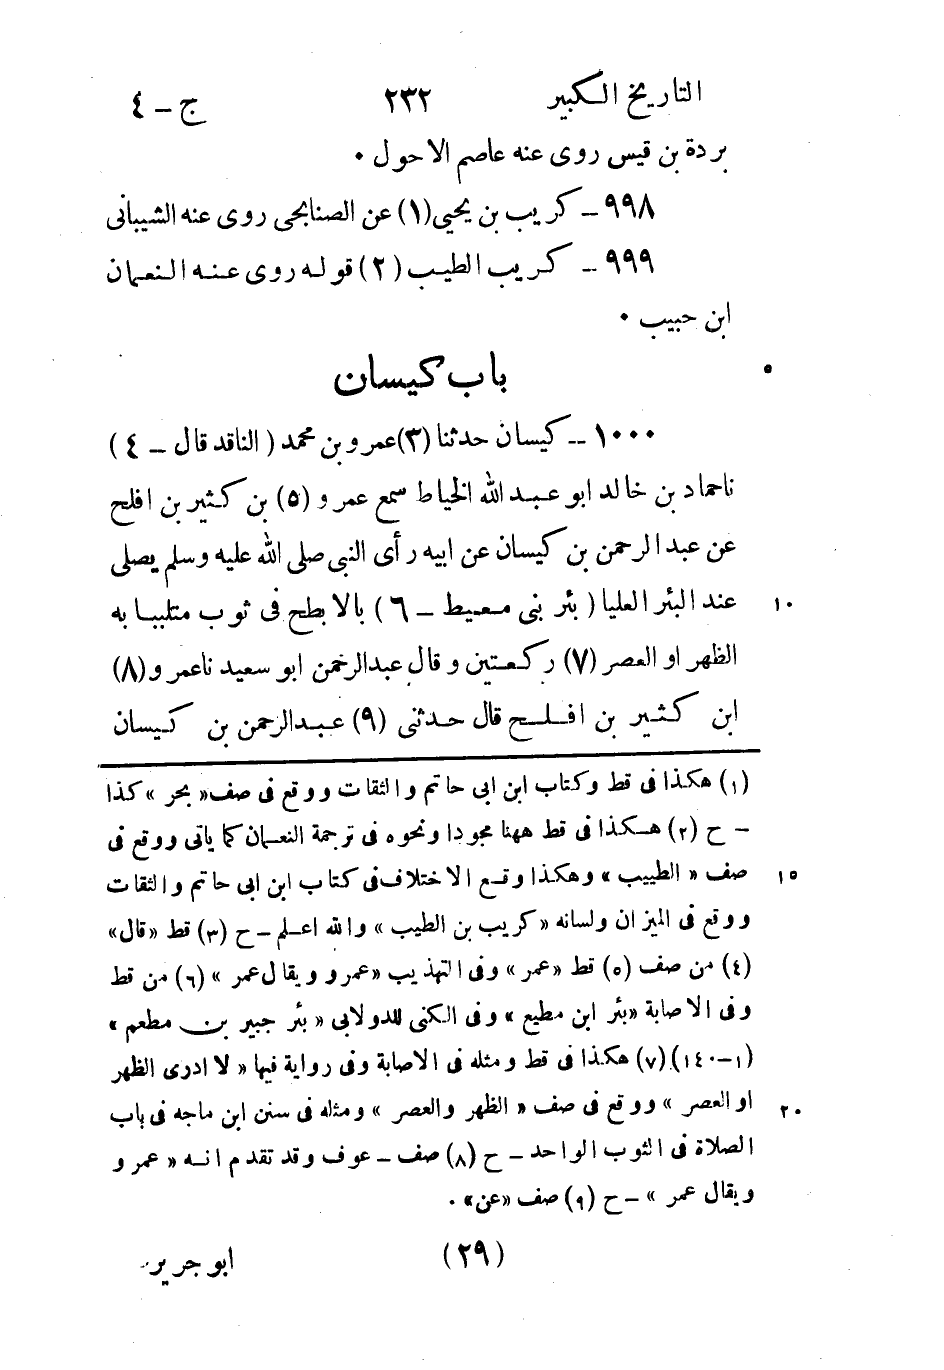 التاريخ الكبير ٢٣٢ ج - ٤
بردة بن قيس روى عنه عاصم الاحول .
٩٩٨ - كريب بن يحيى (١) عن الصنابحى روى عنه الشيبانى
٩٩٩ - كريب الطيب (٢) قوله روى عنه النعمان
ابن حبيب .
باب كيسان
١٠٠٠ - كيسان حدثنا (٣) عمرو بن محمد (الناقد قال - ٤)
نا حماد بن خالد ابو عبد الله الخياط سمع عمرو (٥) بن كثير بن افلح
عن عبد الرحمن بن كيسان عن ابيه رأى النبى صلى الله عليه وسلم يصلى
عند البئر العليا (بئر بنى معيط - ٦) بالابطح فى ثوب متلببا به ١٠
الظهر او العصر (٧) ركعتين وقال عبدالرحمن ابو سعيد نا عمرو (٨)
ابن كثير بن افلح قال حدثنى (٩) عبدالرحمن بن كيسان
(١) هكذا فى قط وكتاب ابن ابى حاتم والثقات ووقع فى صف «بحر» كذا
- ح (٢) هكذا فى قط ههنا مجودا ونحوه فى ترجمة النعمان كما ياتى ووقع فى
صف «الطبيب» وهكذا وقع الاختلاف فى كتاب ابن ابى حاتم والثقات ١٥
ووقع فى الميزان ولسانه «كريب بن الطيب» والله اعلم - ح (٣) قط «قال»
(٤) من صف (٥) قط «عمر» وفى التهذيب «عمرو ويقال عمر» (٦) من قط
وفى الاصابة «بئر ابن مطيع» وفى الكنى للدولابى «بئر جبير بن مطعم»
(١-١٤٠) (٧) هكذا فى قط ومثله فى الاصابة وفى رواية فيها «لا ادرى الظهر
او العصر» ووقع فى صف «الظهر والعصر» ومثله فى سنن ابن ماجه فى باب ٢٠
الصلاة فى الثوب الواحد - ح (٨) صف - عوف وقد تقدم انه «عمرو
ويقال عمر» - ح (٩) صف «عن» .
(٢٩) ابو جرير